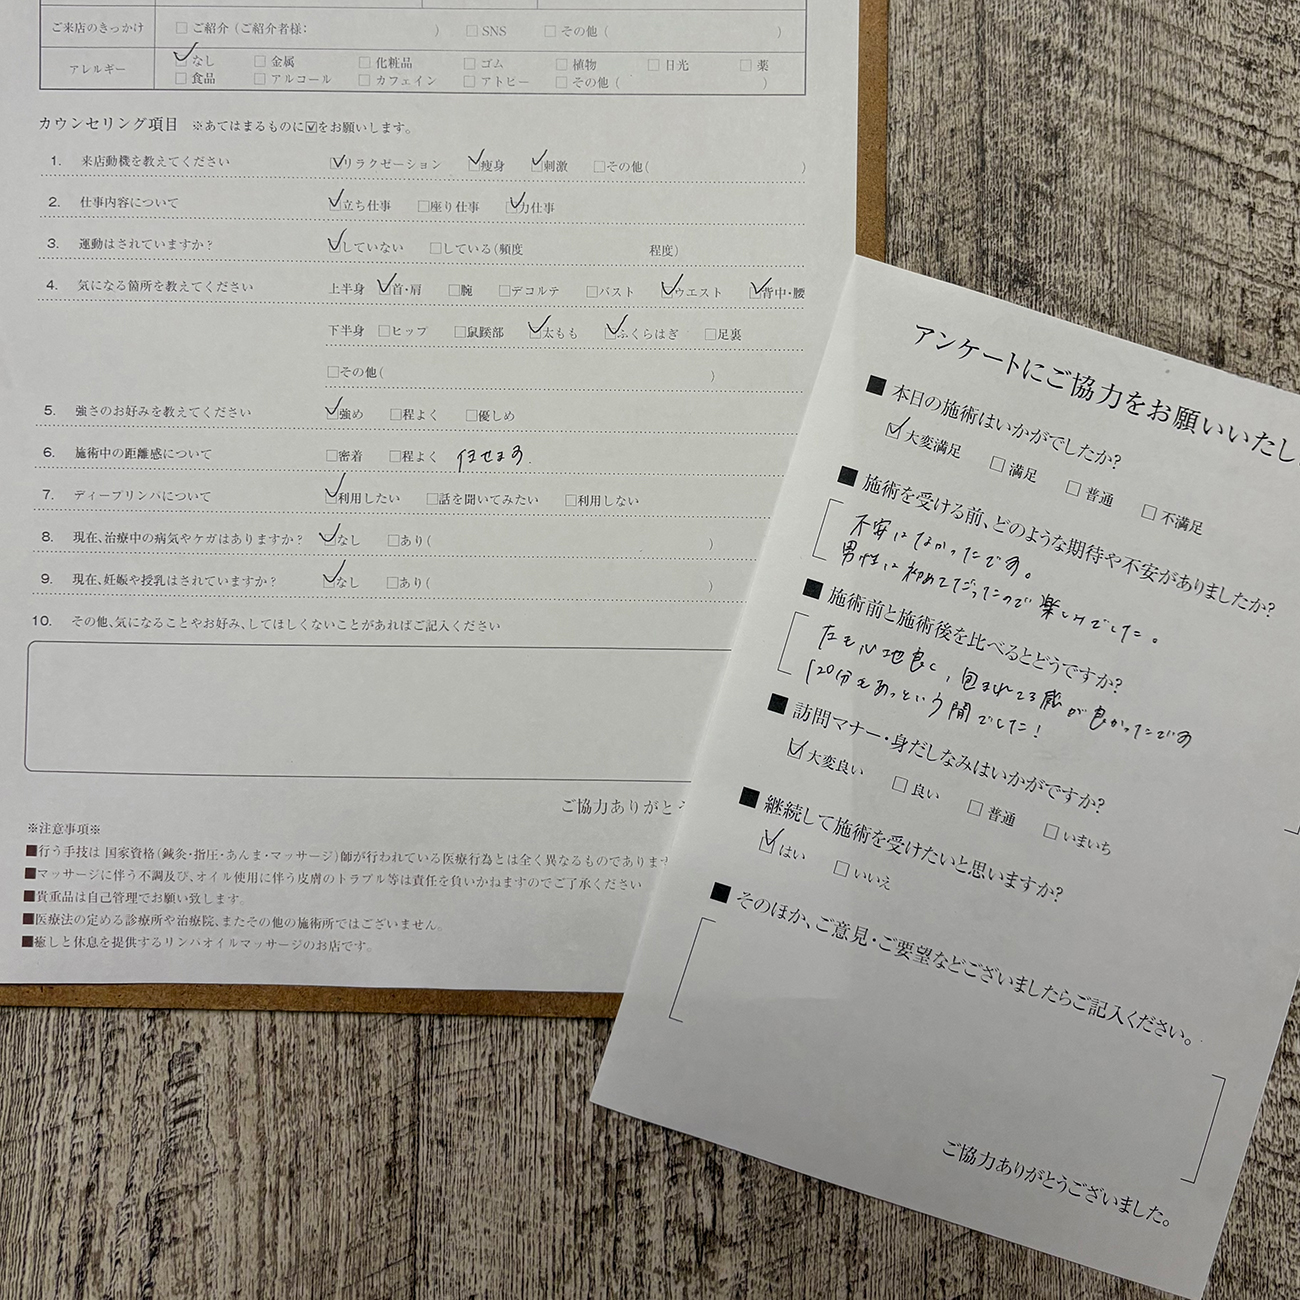 ご来店のきっかけ □ご紹介(ご紹介者様: ) □SNS □その他( )
アレルギー ☑なし □金属 □化粧品 □ゴム □植物 □日光 □薬
□食品 □アルコール □カフェイン □アトピー □その他( )
カウンセリング項目 ※あてはまるものに☑をお願いします。
1. 来店動機を教えてください ☑リラクゼーション ☑痩身 ☑刺激 □その他( )
2. 仕事内容について ☑立ち仕事 □座り仕事 ☑力仕事
3. 運動はされていますか? ☑していない □している(頻度 程度)
4. 気になる箇所を教えてください 上半身 ☑首・肩 □腕 □デコルテ □バスト ☑ウエスト ☑背中・腰
下半身 □ヒップ □鼠蹊部 ☑太もも ☑ふくらはぎ □足裏
□その他( )
5. 強さのお好みを教えてください ☑強め □程よく □優しめ
6. 施術中の距離感について □密着 □程よく 任せます.
7. ディープリンパについて ☑利用したい □話を聞いてみたい □利用しない
8. 現在、治療中の病気やケガはありますか? ☑なし □あり( )
9. 現在、妊娠や授乳はされていますか? ☑なし □あり( )
10. その他、気になることやお好み、してほしくないことがあればご記入ください
ご協力ありがとう
※注意事項※
■行う手技は 国家資格(鍼灸・指圧・あんま・マッサージ)師が行われている医療行為とは全く異なるものでありま
■マッサージに伴う不調及び、オイル使用に伴う皮膚のトラブル等は責任を負いかねますのでご了承ください
■貴重品は自己管理でお願い致します。
■医療法の定める診療所や治療院、またその他の施術所ではございません。
■癒しと休息を提供するリンパオイルマッサージのお店です。
アンケートにご協力をお願いいたし
■ 本日の施術はいかがでしたか?
☑大変満足 □満足 □普通 □不満足
■ 施術を受ける前、どのような期待や不安がありましたか?
不安はなかったです。
男性は初めてだったので楽しみでした。
■ 施術前と施術後を比べるとどうですか?
とても心地良く、包まれてる感が良かったです
120分もあっという間でした!
■ 訪問マナー・身だしなみはいかがですか?
☑大変良い □良い □普通 □いまいち
■ 継続して施術を受けたいと思いますか?
☑はい □いいえ
■ そのほか、ご意見・ご要望などございましたらご記入ください。
ご協力ありがとうございました。